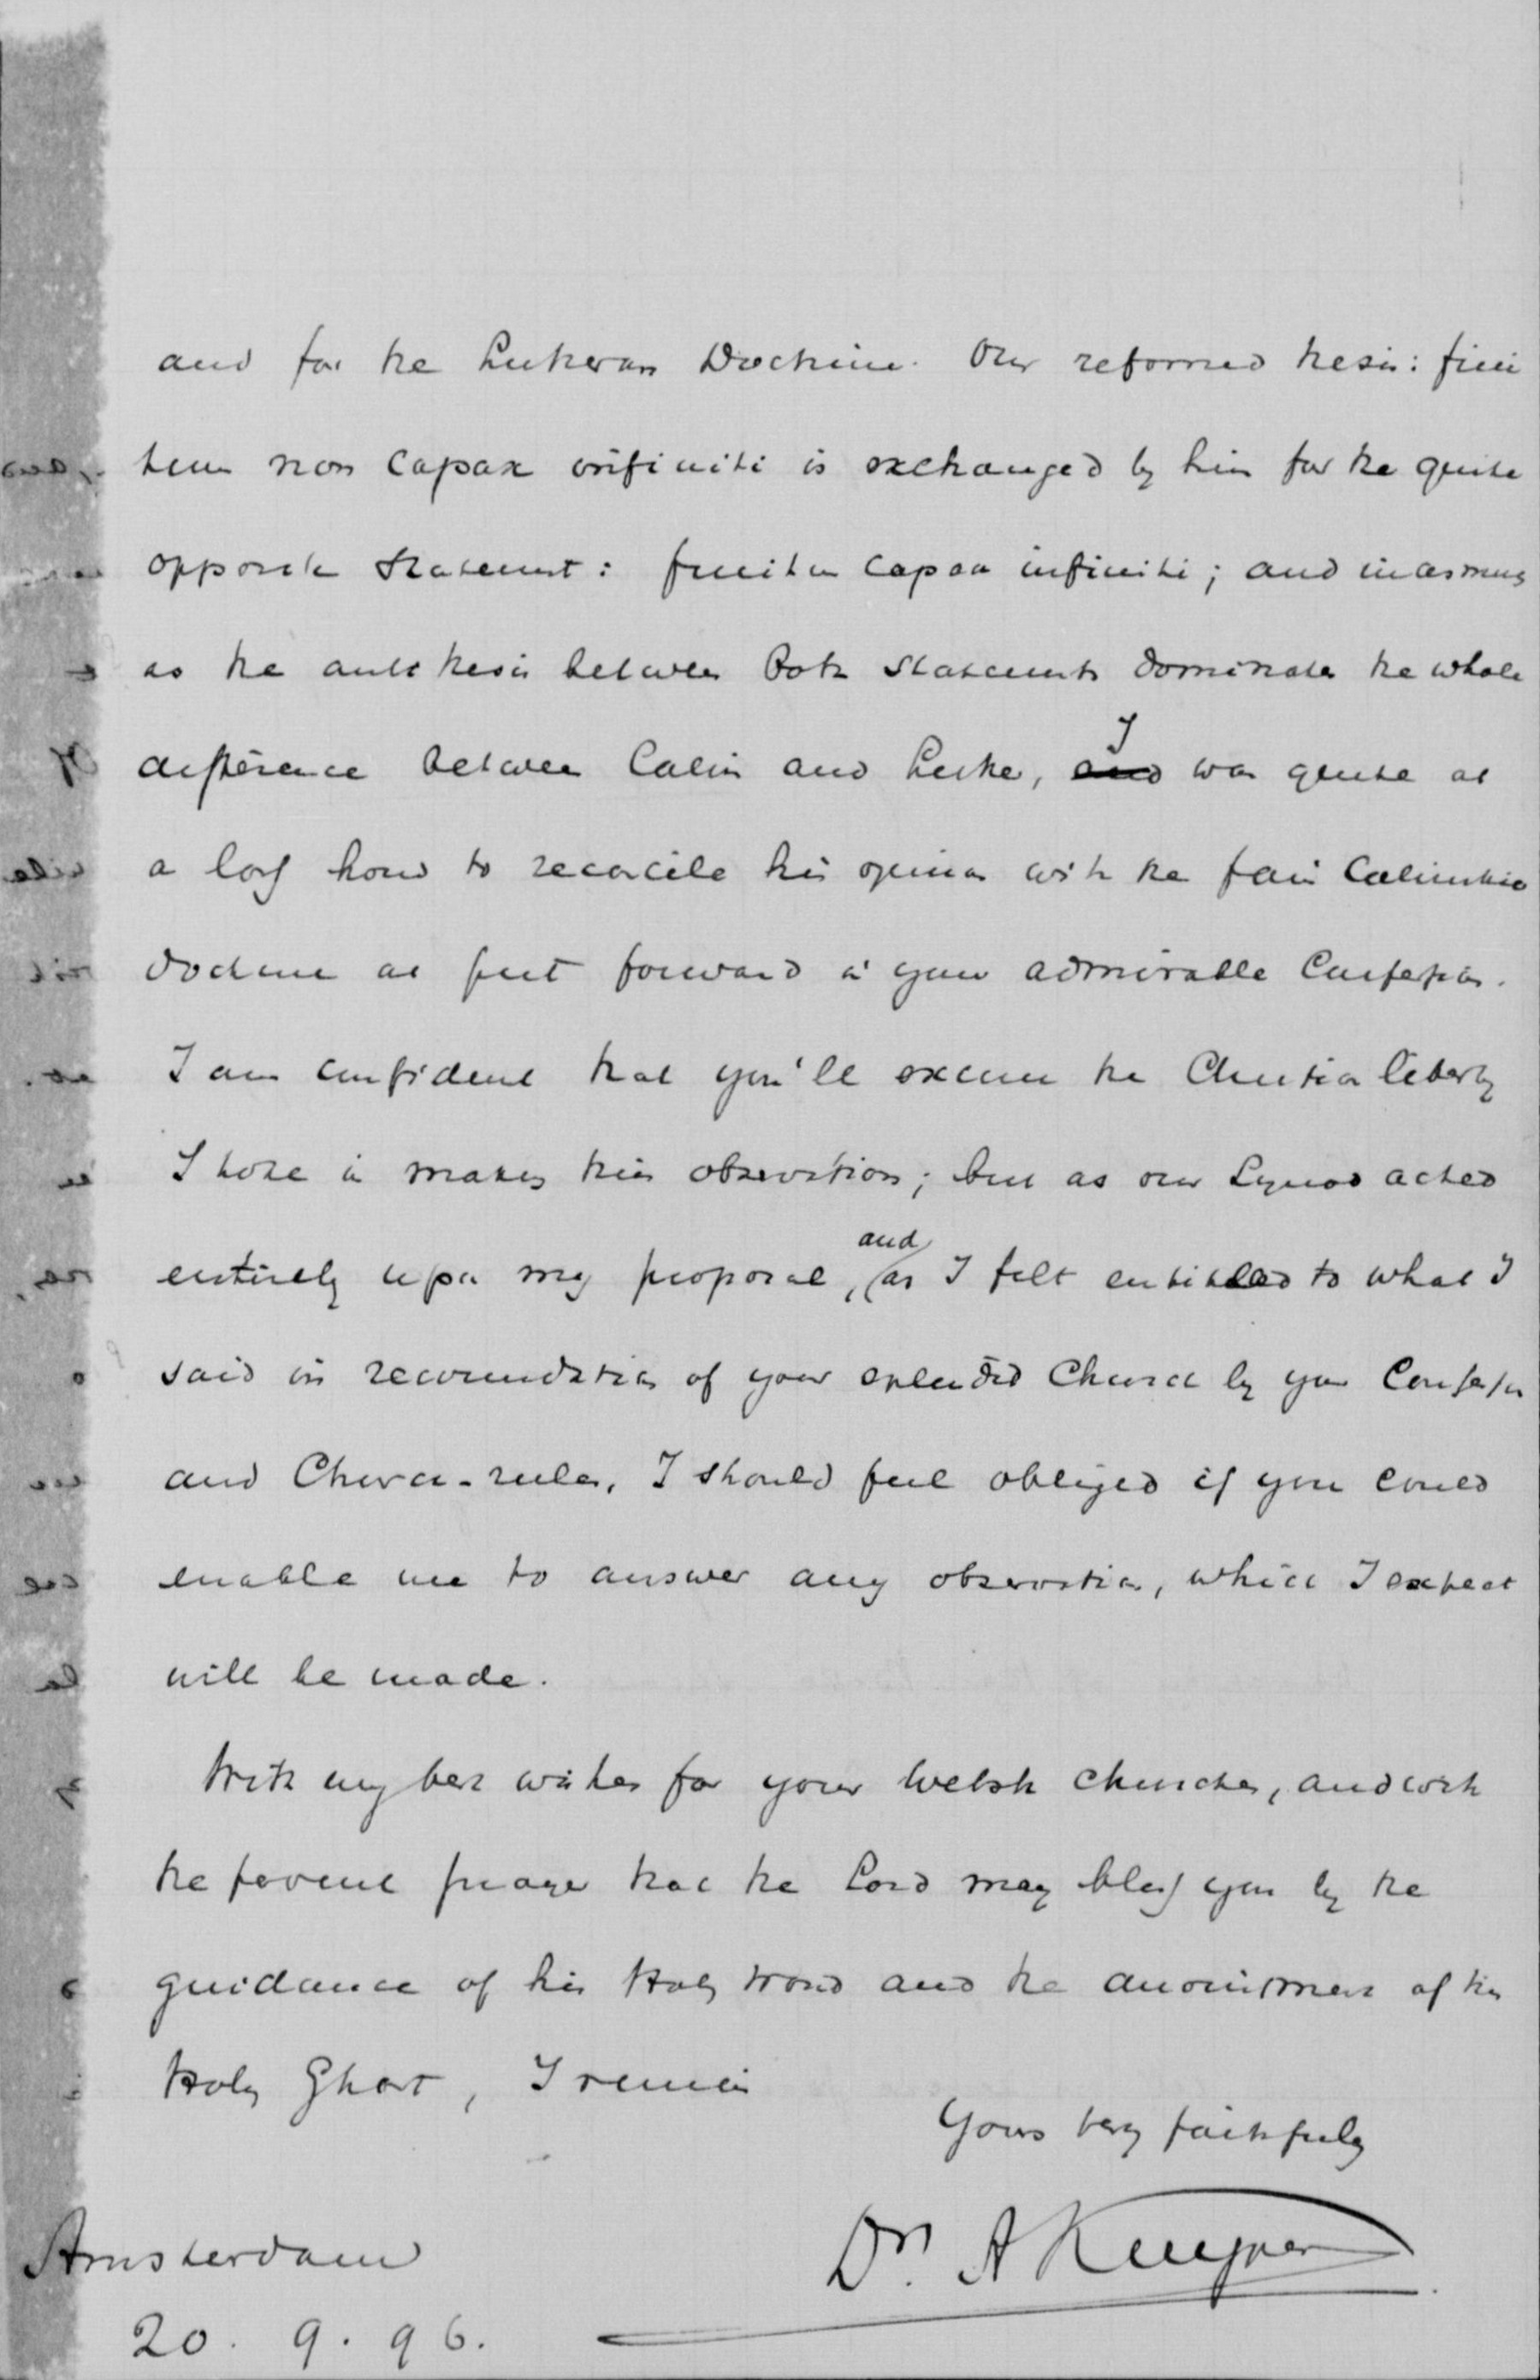 and for the Lutheran Doctrine. Our reformed thesis: fini
tum non capax infiniti is exchanged by him for the quite
opposite statement: finitum capax infiniti; and inasmuch
as the antithesis between both statements dominates the whole
difference between Calvin and Luther, and I was quite at
a loss how to reconcile his opinion with the fair Calvinistic
doctrine as put forward in your admirable Confession.
I am confident that you'll excuse the Christian liberty
I take in making this observation; but as our Synod acted
entirely upon my proposal, and as I felt entitled to what I
said in recomendation of your splendid Church by your Confession
and Church-rules, I should feel obliged if you could
enable me to answer any observation, which I expect
will be made.
With my best wishes for your Welsh churches, and with
the fervent prayer that the Lord may bless you by the
guidance of his Holy Word and the anointment of his
Holy Ghost, I remain
Yours very faithfully
Dr. A Kuyper
Amsterdam
20. 9. 96.